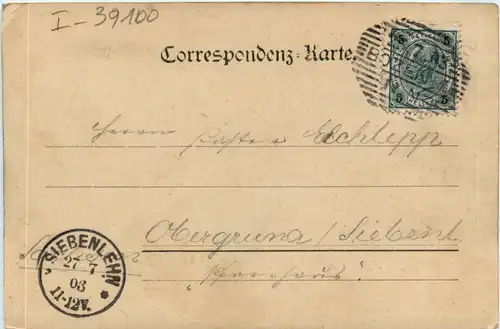 I-39100
Correspondenz-Karte
5 5
5 5
Herrn Pastor
Obergruna / Siebenl
"Pfarrhaus"
SIEBENLEHN
27 7
03
11-12V.